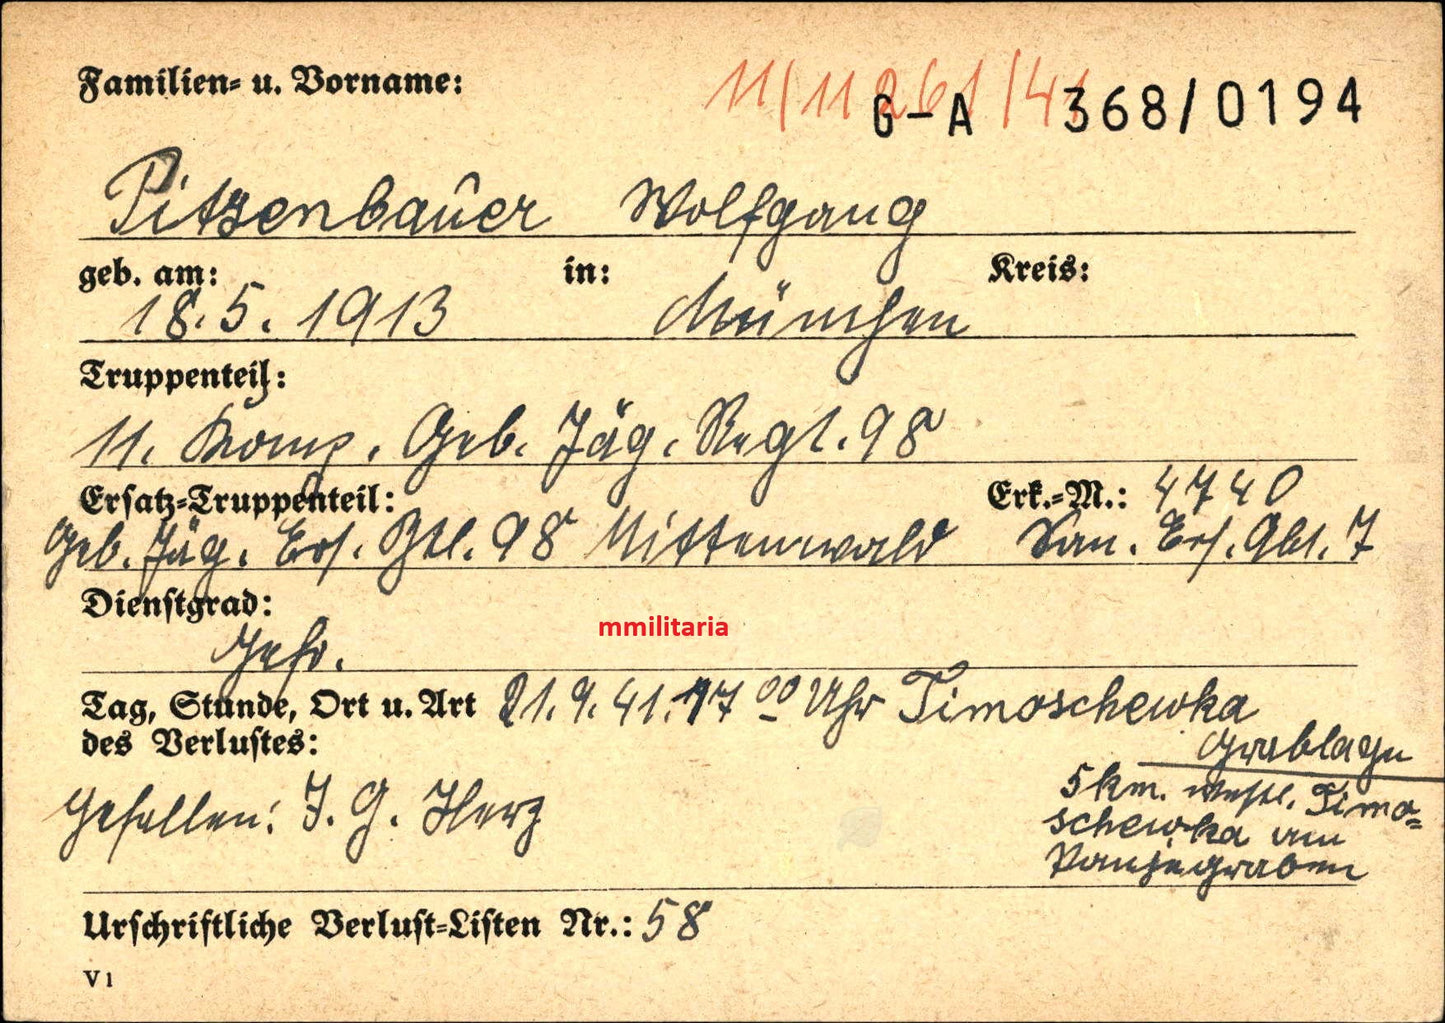 Familien- u. Vorname:
11/11 261/41
G-A 368/0194
Pitzenbauer Wolfgang
geb. am: in: Kreis:
18.5.1913 München
Truppenteil:
11. Komp. Geb. Jäg. Regt. 98
Ersatz-Truppenteil: Erk.-M.: 4740
Geb. Jäg. Ers. Btl. 98 Mittenwald San. Ers. Abt. 7
Dienstgrad:
Gefr.
mmilitaria
Tag, Stunde, Ort u. Art 21.9.41. 17 00 Uhr Timoschewka
des Verlustes:
Grablage
5 km. westl. Timo-
schewka am
Panzergraben
Gefallen: I. G. Herz
Urschriftliche Verlust-Listen Nr.: 58
V 1